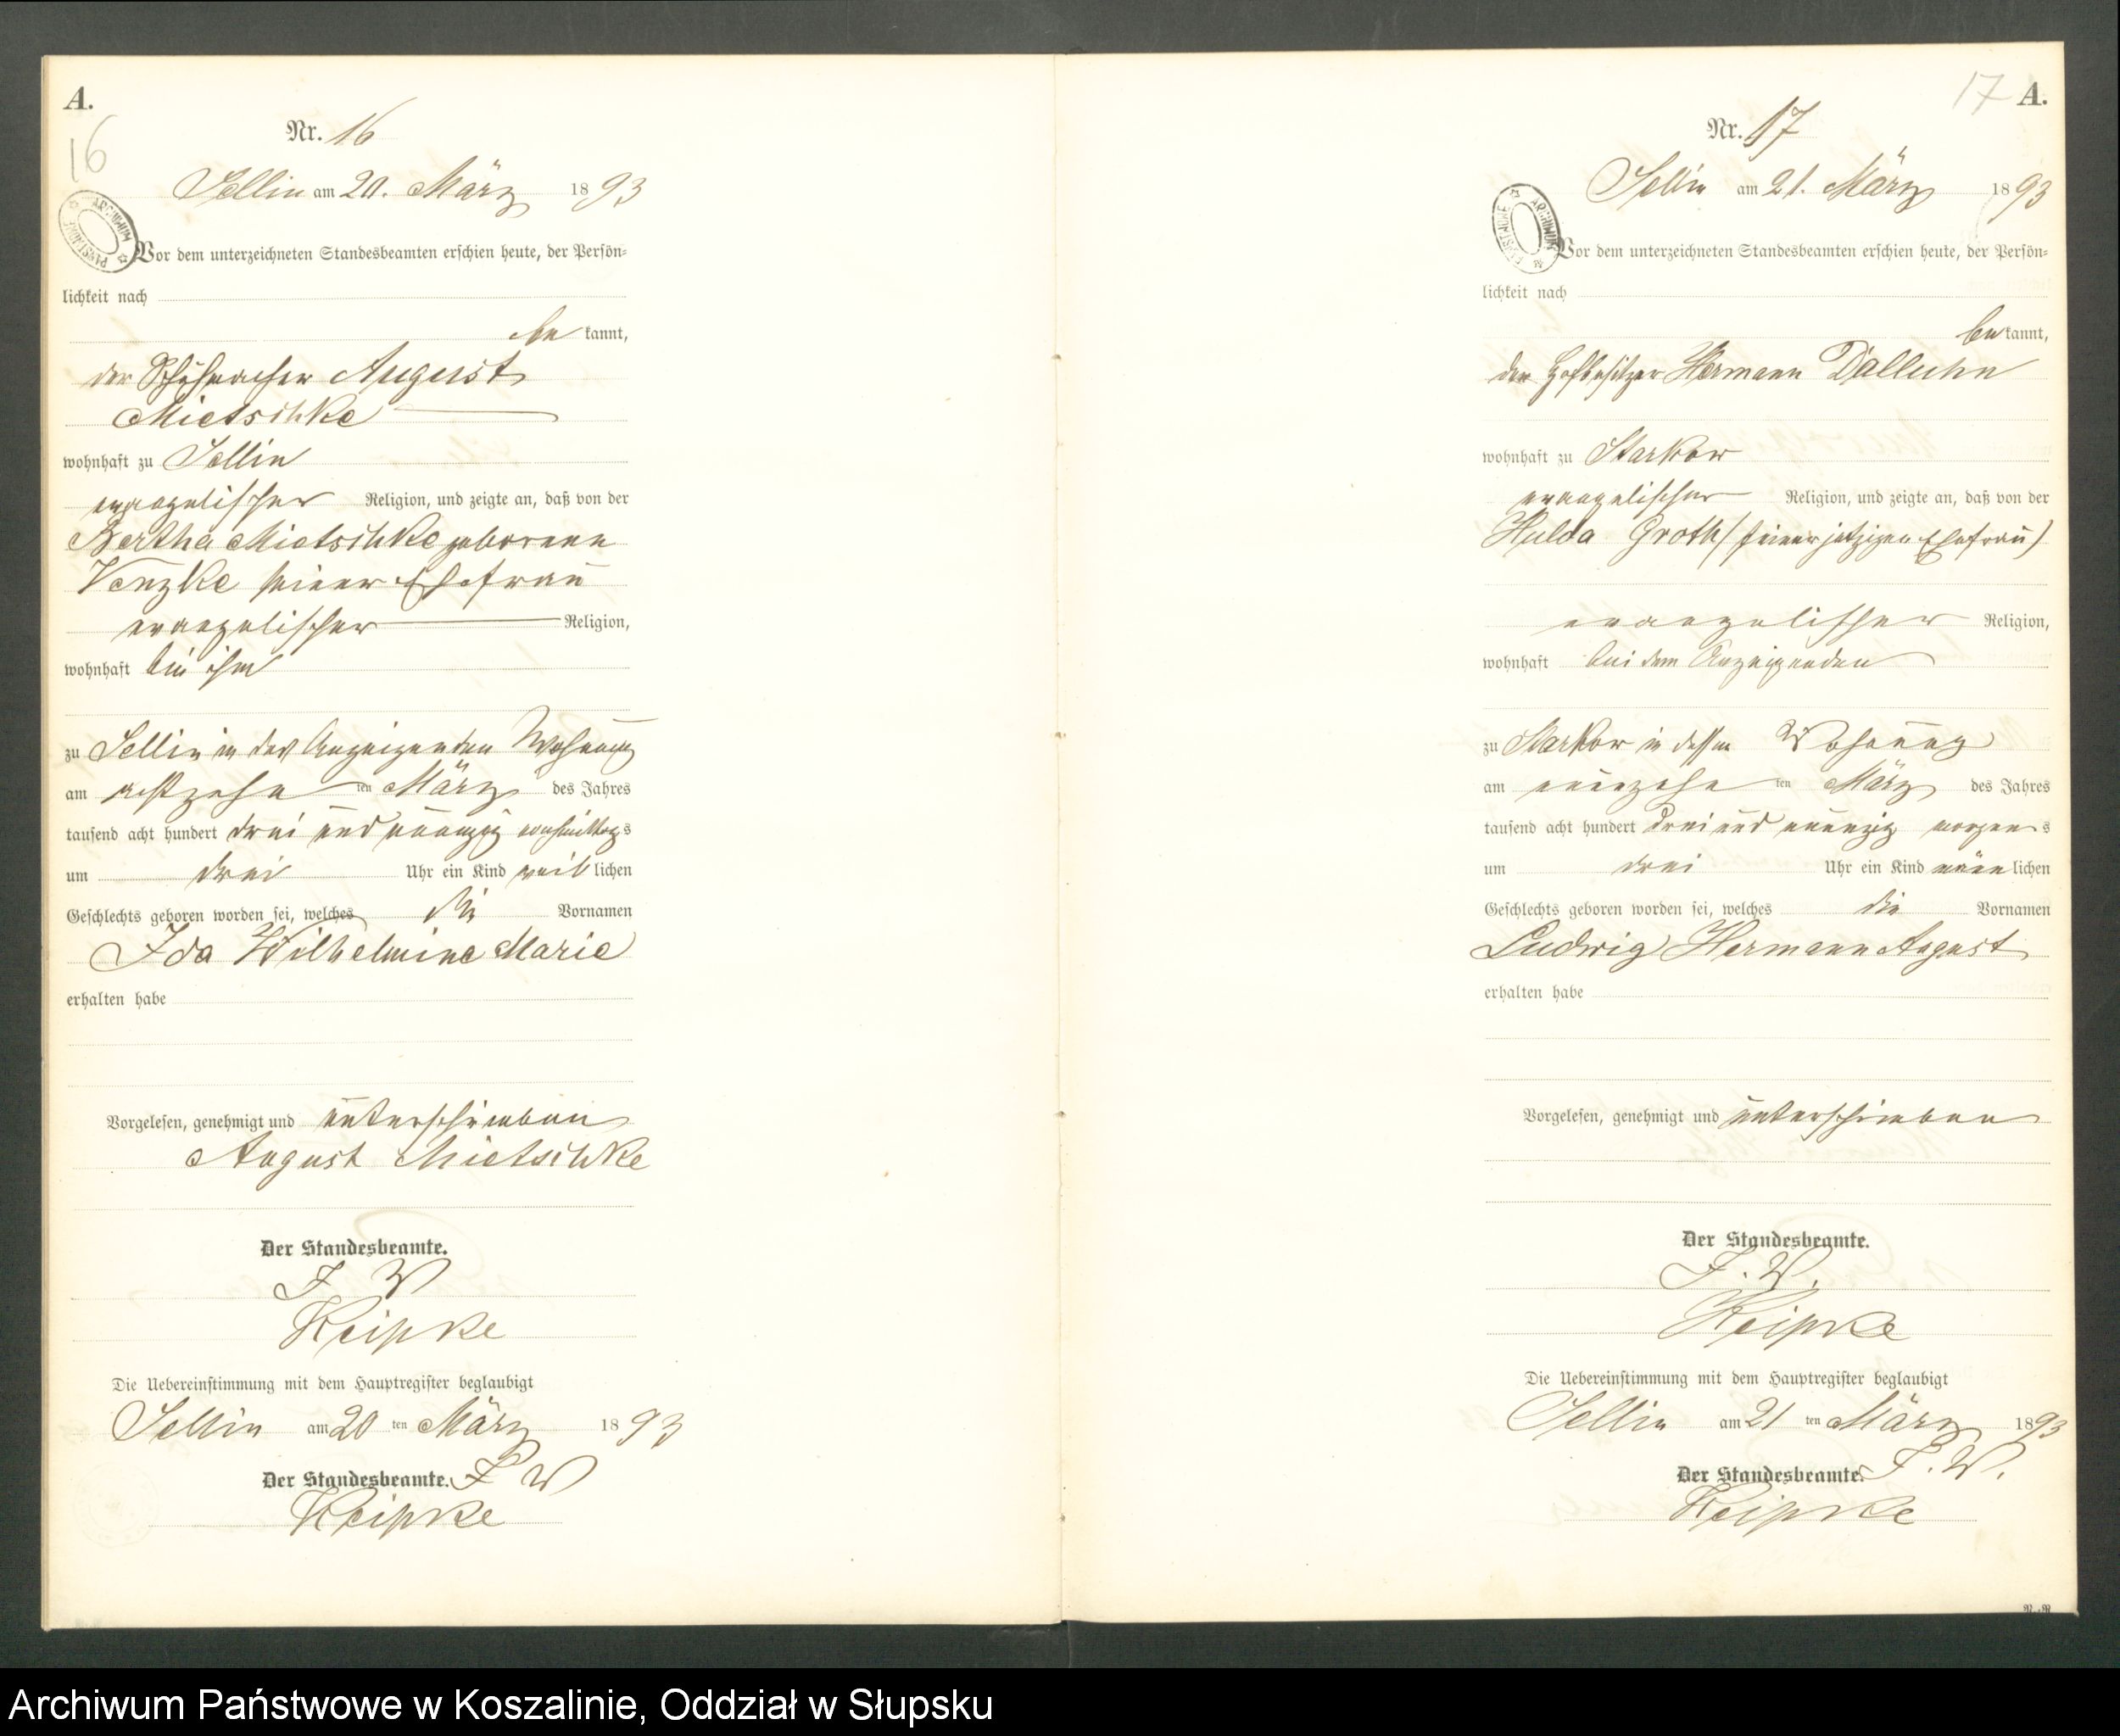 A.
16
Nr. 16
Sellin am 20. März 1893
Vor dem unterzeichneten Standesbeamten erschien heute, der Persön-
lichkeit nach
be kannt,
der Schuhmacher August
Mietschke
wohnhaft zu Sellin
evangelischer Religion, und zeigte an, daß von der
Bertha Mietschke geborenen
Venzke seiner Ehefrau
evangelischer Religion,
wohnhaft bei ihm
zu Sellin in des Anzeigenden Wohnung
am achtzehn ten März des Jahres
tausend acht hundert drei und neunzig nachmittags
um drei Uhr ein Kind weib lichen
Geschlechts geboren worden sei, welches die Vornamen
Ida Wilhelmine Marie
erhalten habe
Vorgelesen, genehmigt und unterschrieben
August Mietschke
Der Standesbeamte.
I W
Keipke
Die Uebereinstimmung mit dem Hauptregister beglaubigt
Sellin am 20 ten März 1893
Der Standesbeamte. I W
Keipke
17 A.
Nr. 17
Sellin am 21. März 1893
Vor dem unterzeichneten Standesbeamten erschien heute, der Persön-
lichkeit nach
be kannt,
der Hofbesitzer Hermann Dalluhn
wohnhaft zu Starkow
evangelischer Religion, und zeigte an, daß von der
Hulda Groth (seiner jetzigen Ehefrau)
evangelischer Religion,
wohnhaft bei dem Anzeigenden
zu Starkow in dessen Wohnung
am neunzehn ten März des Jahres
tausend acht hundert drei und neunzig morgens
um drei Uhr ein Kind männ lichen
Geschlechts geboren worden sei, welches die Vornamen
Ludwig Hermann August
erhalten habe
Vorgelesen, genehmigt und unterschrieben
Der Standesbeamte.
I. W.
Keipke
Die Uebereinstimmung mit dem Hauptregister beglaubigt
Sellin am 21 ten März 1893
Der Standesbeamte. I. W.
Keipke
Archiwum Państwowe w Koszalinie, Oddział w Słupsku